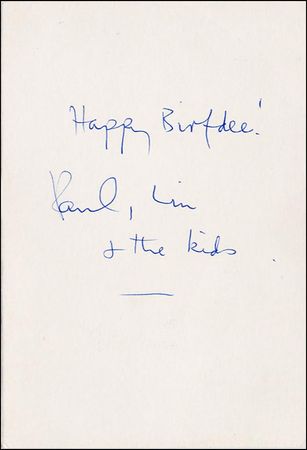 Happy Birfdee!
Paul, Lin
& the kids.